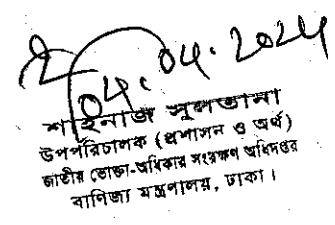 04.04.2024
শাহনাজ সুলতানা
উপপরিচালক (প্রশাসন ও অর্থ)
জাতীয় ভোক্তা-অধিকার সংরক্ষণ অধিদপ্তর
বাণিজ্য মন্ত্রণালয়, ঢাকা।